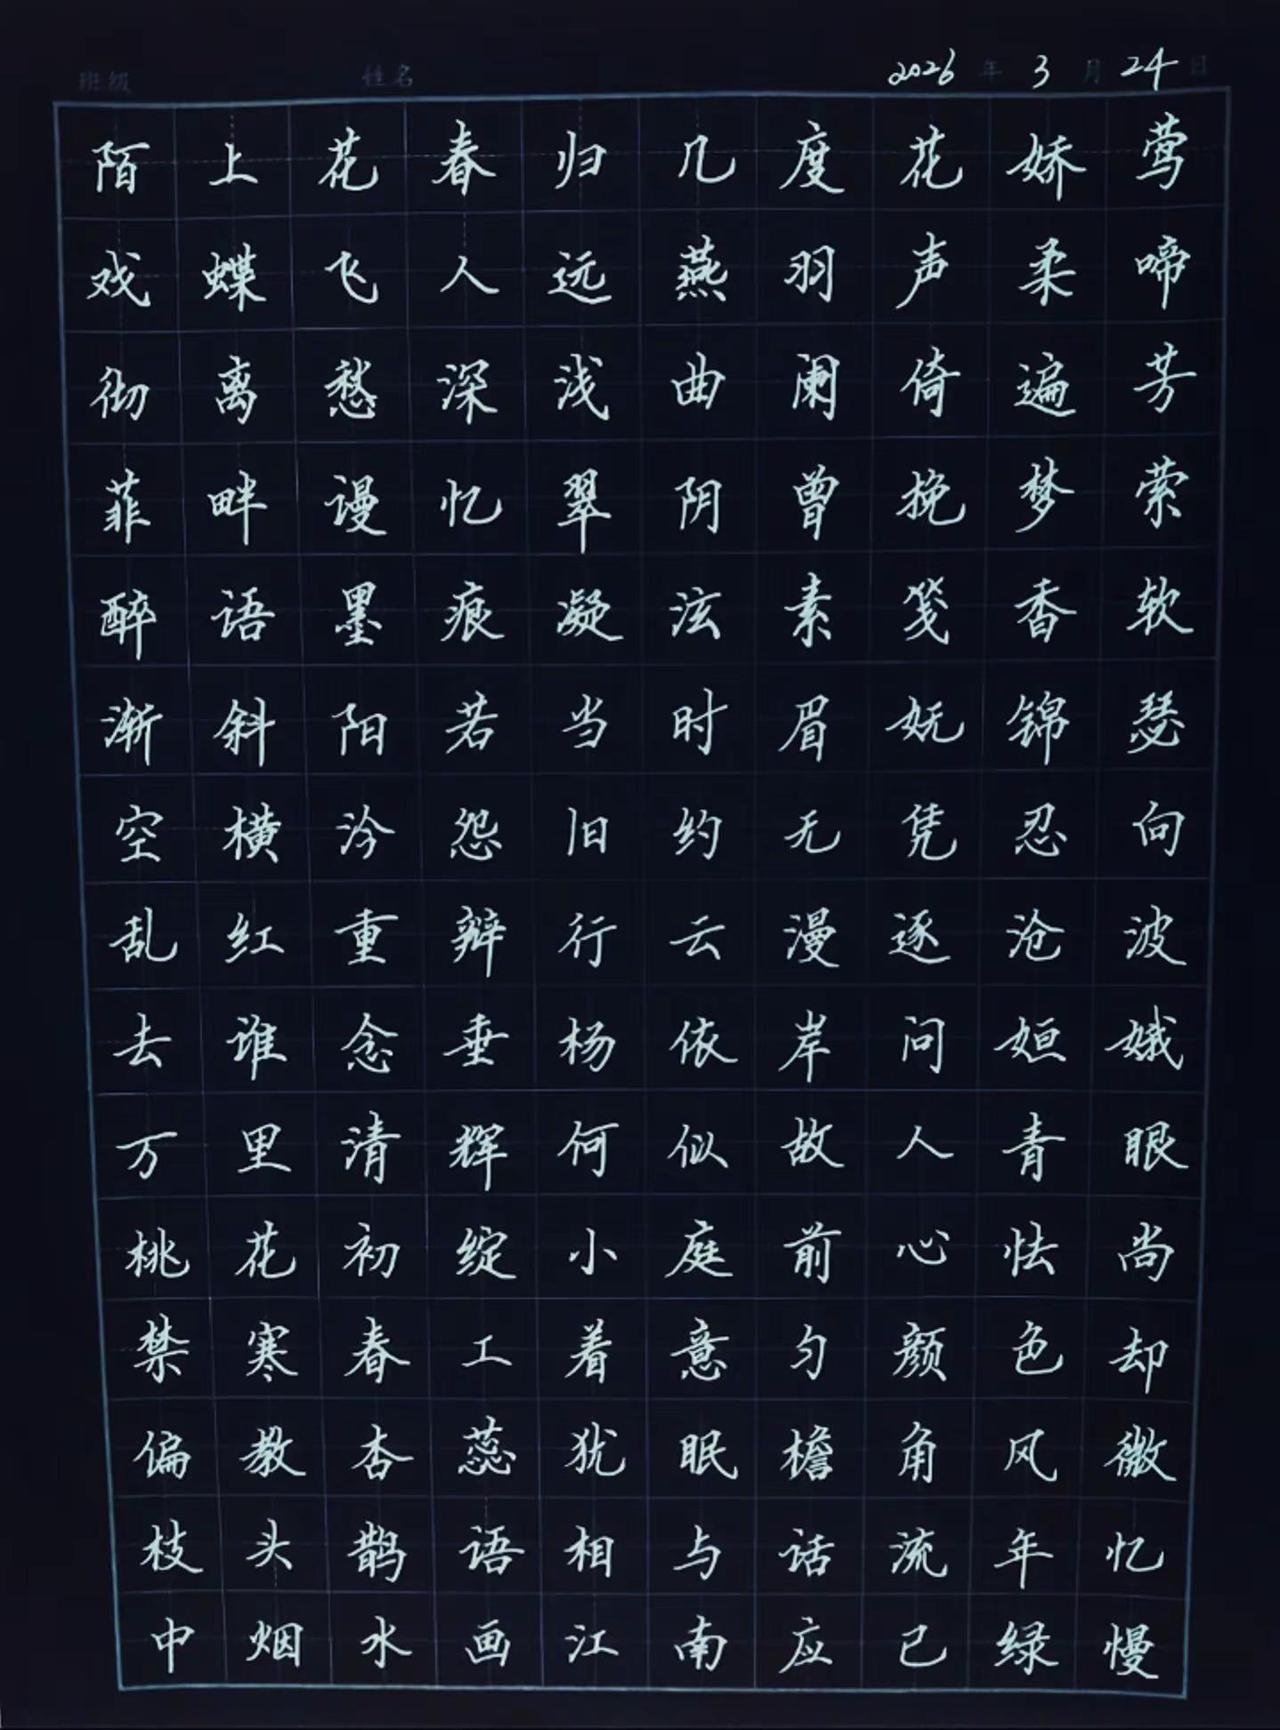 班级 姓名 2026年3月24日
陌上花春归几度花娇莺
戏蝶飞人远燕羽声柔啼
彻离愁深浅曲阑倚遍芳
菲畔谩忆翠阴曾挽梦萦
醉语墨痕凝泫素笺香软
渐斜阳若当时眉妩锦瑟
空横沴怨旧约无凭忍向
乱红重辩行云漫逐沧波
去谁念垂杨依岸问姮娥
万里清辉何似故人青眼
桃花初绽小庭前心怯尚
禁寒春工着意匀颜色却
偏教杏蕊犹眠檐角风微
枝头鹊语相与话流年忆
中烟水画江南应已绿慢